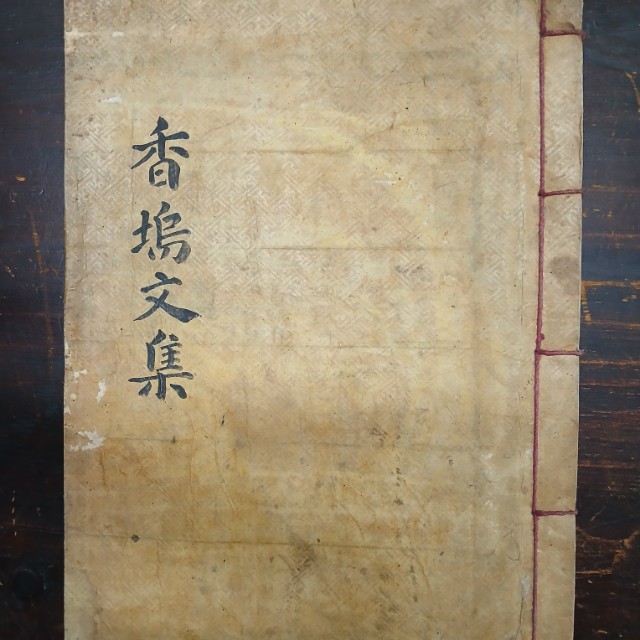 香塢文集